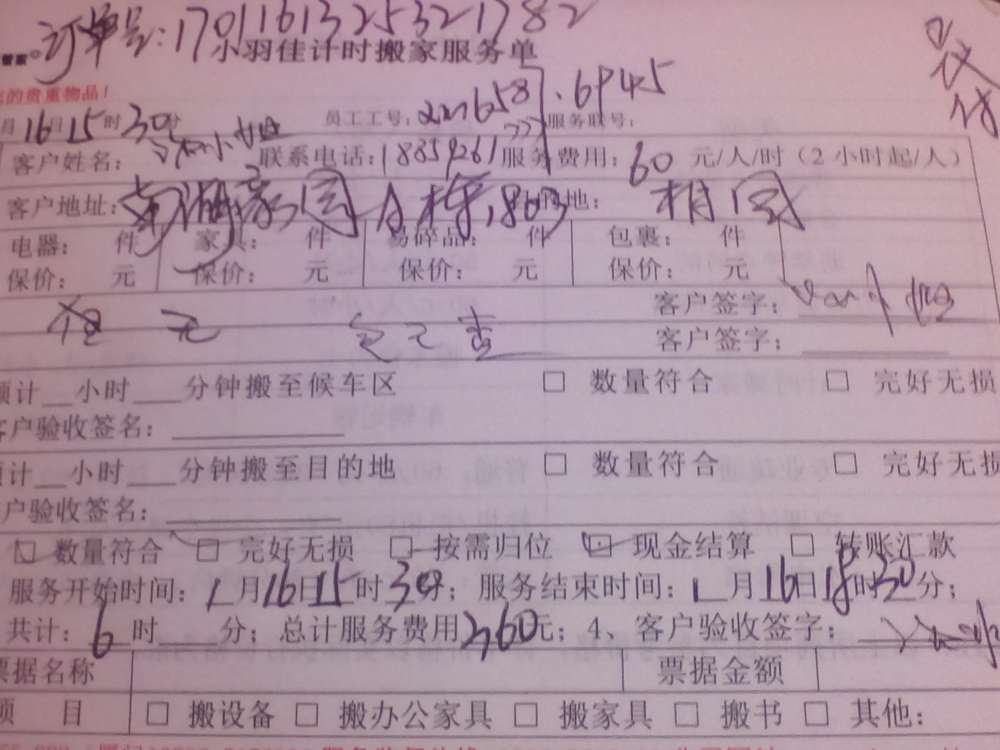 订单号:1701161325321782
小羽佳计时搬家服务单
的贵重物品!
月16日15时30分 员工工号: 服务联号: 6945
客户姓名: 小姐 联系电话: 服务费用: 60 元/人/时(2小时起/人)
客户地址: 南湖豪园A栋,803 地: 相同
电器: 件 家具: 件 易碎品: 件 包裹: 件
保价: 元 保价: 元 保价: 元 保价: 元
客户签字:
客户签字:
预计 小时 分钟搬至候车区 □ 数量符合 □ 完好无损
客户验收签名:
预计 小时 分钟搬至目的地 □ 数量符合 □ 完好无损
客户验收签名:
□ 数量符合 □ 完好无损 □ 按需归位 □ 现金结算 □ 转账汇款
服务开始时间: 1月16日15时30分; 服务结束时间: 1月16日18时30分;
共计: 6时 分; 总计服务费用360元; 4、客户验收签字:
票据名称 票据金额
项 目 □ 搬设备 □ 搬办公家具 □ 搬家具 □ 搬书 □ 其他: